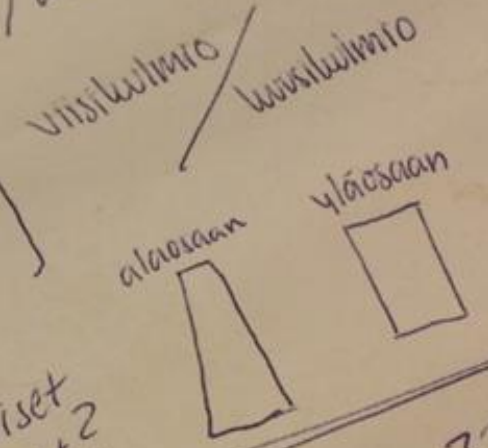 viisikulmio / kuusikulmio
alaosaan
yläosaan
iset
2